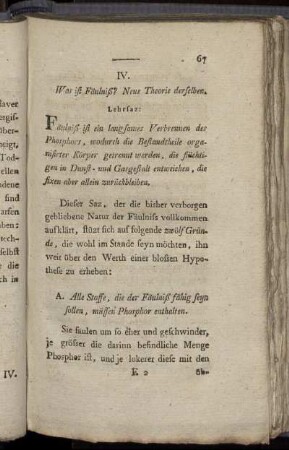 67
IV.
Was ist Fäulniß? Neue Theorie derselben.
Lehrsaz:
Fäulniß ist ein langsames Verbrennen des
Phosphors, wodurch die Bestandtheile orga-
nisirter Körper getrennt worden, die flüchti-
gen in Dunst- und Gasgestalt entweichen, die
fixen aber allein zurückbleiben.
Dieser Saz, der die bisher verborgen
gebliebene Natur der Fäulniss vollkommen
aufklärt, stüzt sich auf folgende zwölf Grün-
de, die wohl im Stande seyn möchten, ihn
weit über den Werth einer blossen Hypo-
these zu erheben:
A. Alle Stoffe, die der Fäulniß fähig seyn
sollen, müssen Phosphor enthalten.
Sie faulen um so eher und geschwinder,
je grösser die darinn befindliche Menge
Phosphor ist, und je lokerer diese mit den
E 2
IV.